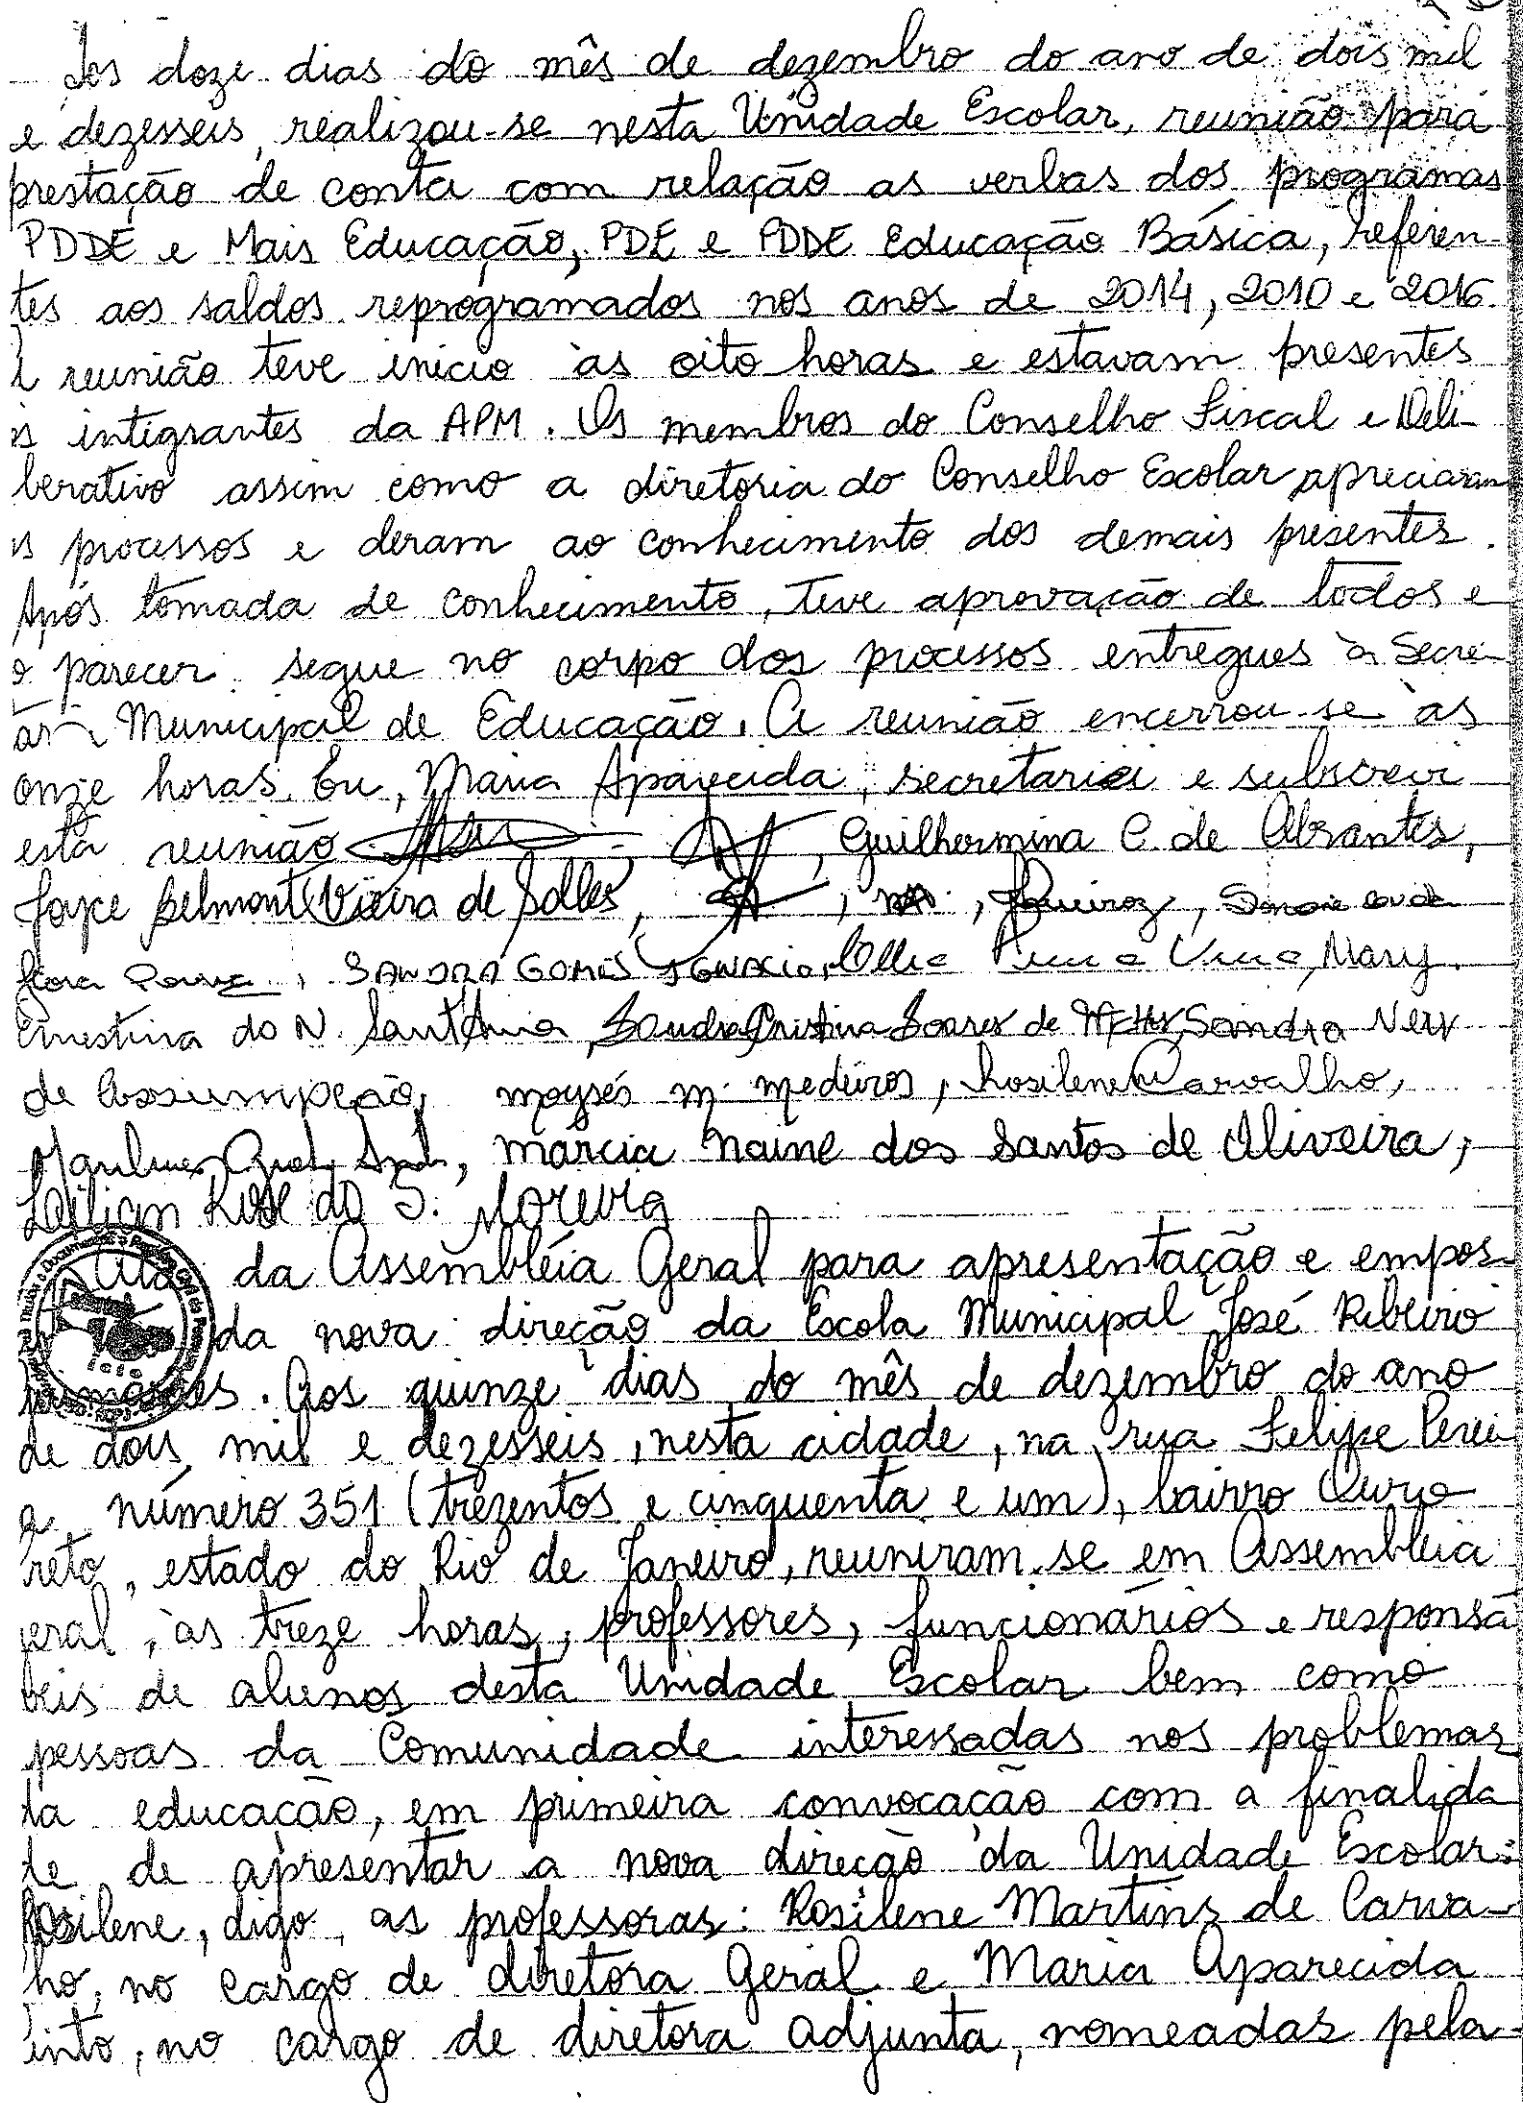 Aos doze dias do mês de dezembro do ano de dois mil
e dezesseis, realizou-se nesta Unidade Escolar, reunião para
prestação de conta com relação as verbas dos programas
PDDE e Mais Educação, PDE e PDDE Educação Básica, referen-
tes aos saldos reprogramados nos anos de 2014, 2010 e 2016.
A reunião teve início às oito horas e estavam presentes
os integrantes da APM. Os membros do Conselho Fiscal e Deli-
berativo assim como a diretoria do Conselho Escolar apreciaram
os processos e deram ao conhecimento dos demais presentes.
Após tomada de conhecimento, teve aprovação de todos e
o parecer segue no corpo dos processos entregues à Secre-
Municipal de Educação. A reunião encerrou-se às
onze horas. Eu, Maria Aparecida, secretariei e subscrevi
esta reunião , , Guilhermina C. de Abrantes,
Joyce Belmont Vieira de Salles, , , ,
, SANDRA GOMES IGNACIO, Mary
Ernestina do N. Sant'Anna, Sandra Cristina Soares de Sandra Nery
de Assumpção, moysés m. medeiros, Rosilene M Carvalho,
, marcia naine dos Santos de Oliveira,
Lailian Rose do S. Moreira
Ata da Assembléia Geral para apresentação e empos-
da nova direção da Escola Municipal José Ribeiro
. Aos quinze dias do mês de dezembro do ano
de dois mil e dezesseis, nesta cidade, na rua Felipe Perei
a número 351 (trezentos e cinquenta e um), bairro Ouro
reto, estado do Rio de Janeiro, reuniram-se em Assembléia
geral, às treze horas, professores, funcionários e responsá
veis de alunos desta Unidade Escolar bem como
pessoas da Comunidade interessadas nos problemas
da educação, em primeira convocação com a finalida
de de apresentar a nova direção da Unidade Escolar:
Rosilene, digo, as professoras: Rosilene Martins de Carva-
lho, no cargo de diretora Geral e Maria Aparecida
into, no cargo de diretora adjunta, nomeadas pela